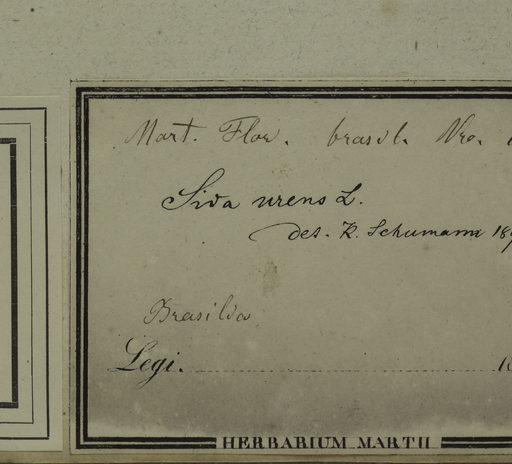 Mart. Flor. brasil. Nro.
Sida urens L.
det. K. Schumann 18
Brasilia
Legi.
HERBARIUM MARTII